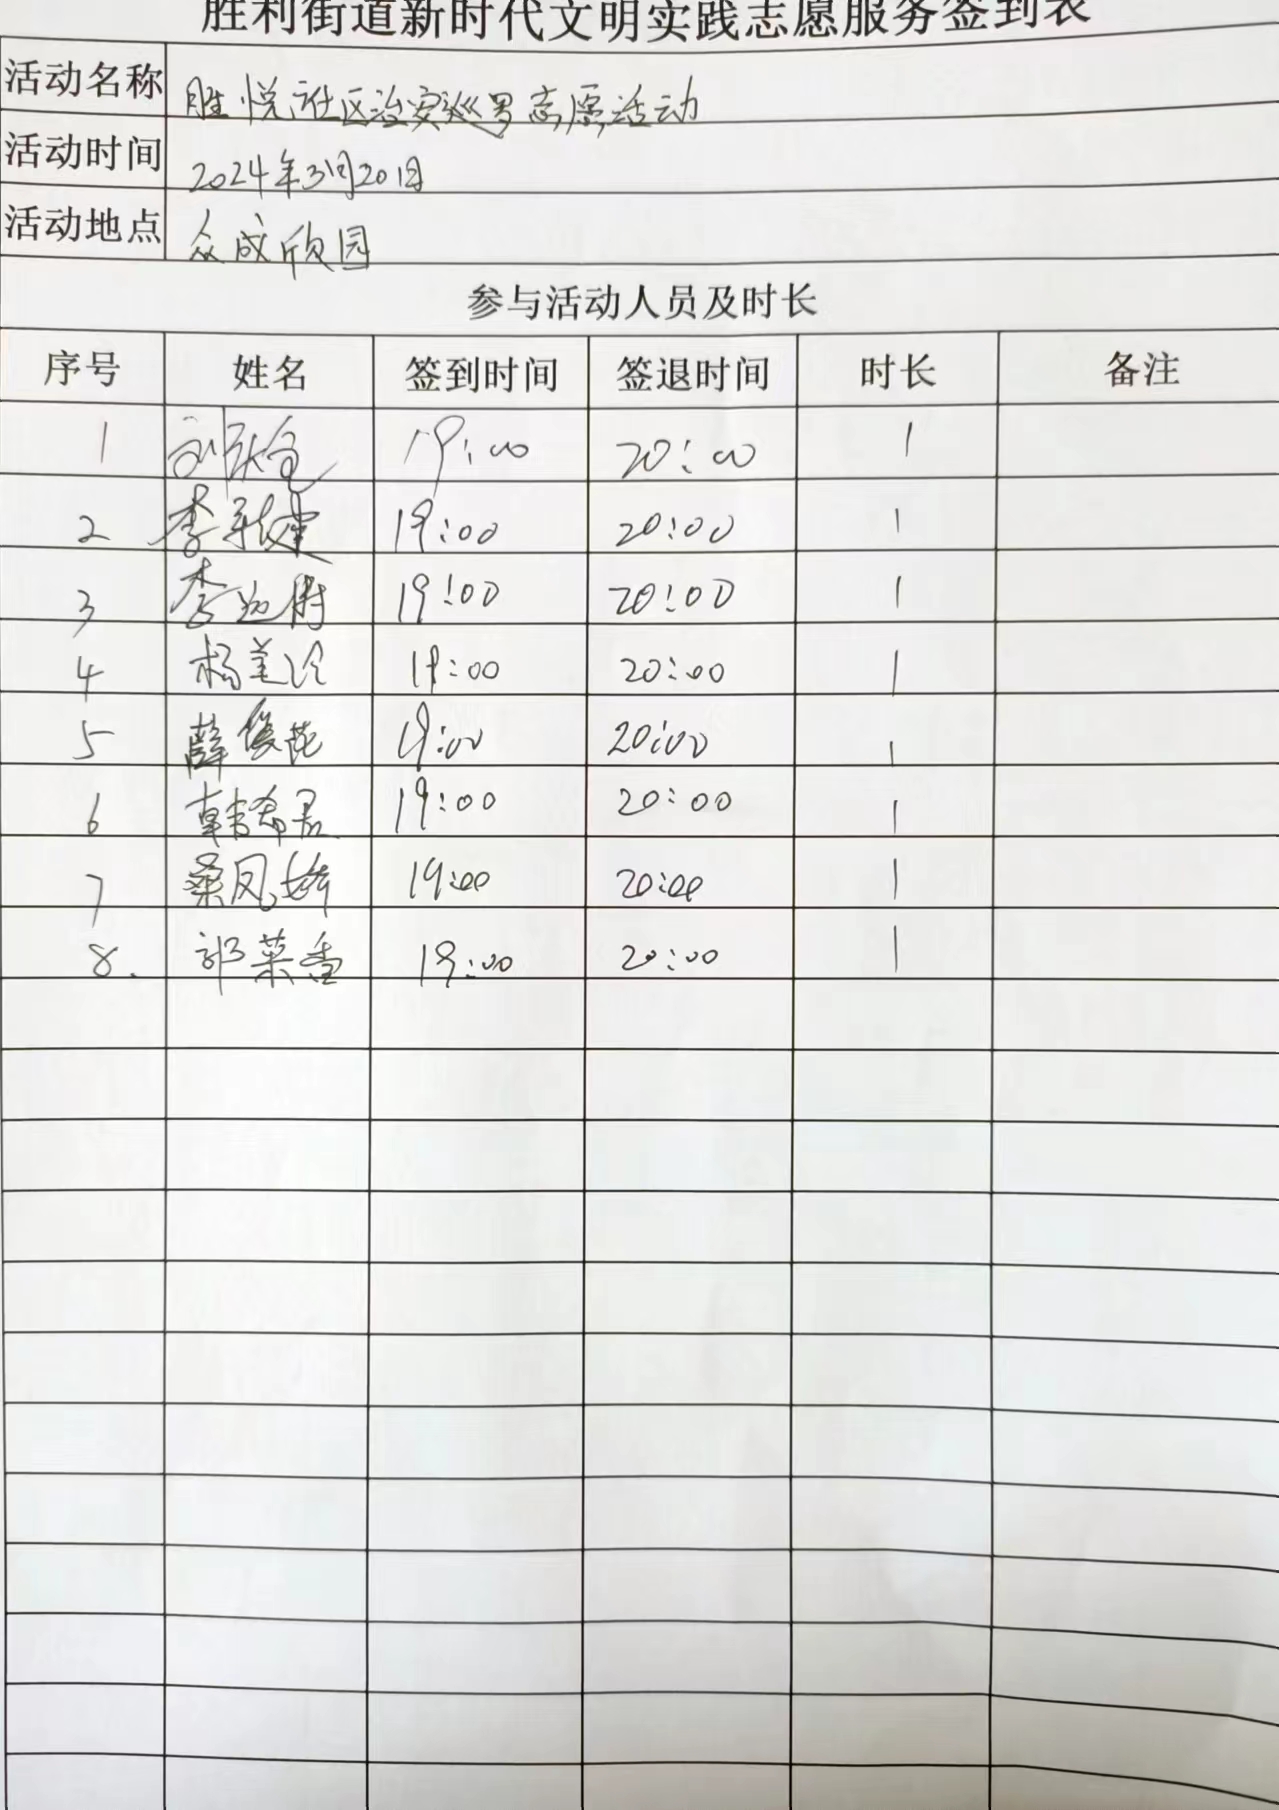 胜利街道新时代文明实践志愿服务签到表
活动名称 胜悦社区治安巡罗志愿活动
活动时间 2024年3月20日
活动地点 众成欣园
参与活动人员及时长
序号 姓名 签到时间 签退时间 时长 备注
1 刘 19:00 20:00 1
2 李 建 19:00 20:00 1
3 李 19:00 20:00 1
4 杨美玲 19:00 20:00 1
5 薛俊花 19:00 20:00 1
6 韩希君 19:00 20:00 1
7 桑凤娇 19:00 20:00 1
8. 郭菜香 19:00 20:00 1